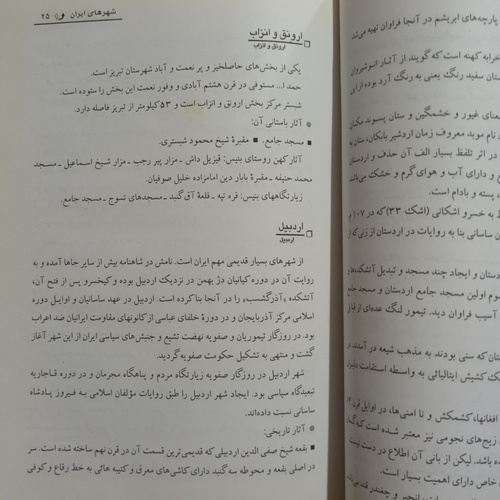 شهرهای ایران ۲۵
ارونق و انزاب
ارونق و انزاب
یکی از بخش‌های حاصلخیز و پر نعمت و آباد شهرستان تبریز است.
حمد ا... مستوفی در قرن هشتم آبادی و وفور نعمت این بخش را ستوده است.
شبستر مرکز بخش ارونق و انزاب است و ۵۳ کیلومتر از تبریز فاصله دارد.
آثار باستانی آن:
■ مسجد جامع. ■ مقبرهٔ شیخ محمود شبستری.
آثار کهن روستای بنیس: قیزیل داش ـ مزار پیر رجب ـ مزار شیخ اسماعیل ـ مسجد
محمد حنیفه ـ مقبرهٔ بابار دین امامزاده خلیل صوفیان.
زیارتگاههای بنیس: قره تپه ـ قلعهٔ آق‌گنبد ـ مسجدهای نسوج ـ مسجد جامع.
اردبیل
اردبیل
از شهرهای بسیار قدیمی مهم ایران است. نامش در شاهنامه بیش از سایر جاها آمده و به
روایت آن در دوره کیانیان دژ بهمن در نزدیک اردبیل بوده و کیخسرو پس از فتح آن،
آتشکده «آذرگشسب» را در آنجا بنا کرده است. اردبیل در عهد ساسانیان و اوایل دوره
اسلامی مرکز آذربایجان و در دورهٔ خلفای عباسی از کانونهای مقاومت ایرانیان ضد اعراب
بود. در روزگار تیموریان و صفویه نهضت تشیع و جنبش‌های سیاسی ایران از این شهر آغاز
گشت و منتهی به تشکیل حکومت صفویه گردید.
شهر اردبیل در روزگار صفویه زیارتگاه مردم و پناهگاه مجرمان و در دوره قاجاریه
تبعیدگاه سیاسی بود. ایجاد شهر اردبیل را طبق روایات مؤلفان اسلامی به فیروز پادشاه
ساسانی نسبت داده‌اند.
آثار تاریخی:
■ بقعه شیخ صفی الدین اردبیلی که قدیمی‌ترین قسمت آن در قرن نهم ساخته شده است. سر
در اصلی بقعه و محوطه سه گنبد دارای کاشی‌های معرق و کتیبه هائی به خط رقاع و کوفی
پارچه‌های ابریشم در آنجا فراوان تهیه می‌شد
خرابه کهنه است که گویند از آثار انوشیروان
ستان سفید رنگ یعنی به رنگ آرد بوده از این
معنای غیور و خشمگین و ستان پسوند مکان
نام موبد معروف زمان اردشیر بابکان، ستان به
در اثر تلفظ بسیار الف آن حذف و اردستان
و دارای آب و هوای گرم و خشک می‌باشد
، پسته و بادام است.
ط به خسرو اشکانی (اشک ۳۳) که در ۱۰۷ م
ن ساسانی بنا به روایات در اردستان از زنی که از
دستان و ایجاد چند مسجد و تبدیل آتشکده‌ها
سوم اولین مسجد جامع اردستان و مسجد جامع
آسیب فراوان دید. تیمور لنگ عده‌ای از قبایل
ستان که سنی بودند به مذهب شیعه در آمدند در
یک کشیش ایتالیائی به واسطه استقامت دلیران
افغانها، کشمکش و نا امنی‌ها، در اوایل قرن ۱۴
زیج‌های نجومی نیز معتبر شده است که
باشد. لیکن از بانی آن اطلاع در دست نیست
خاص دارای اهمیت بسیار است.
انجیر و چغندر قند می‌باشد